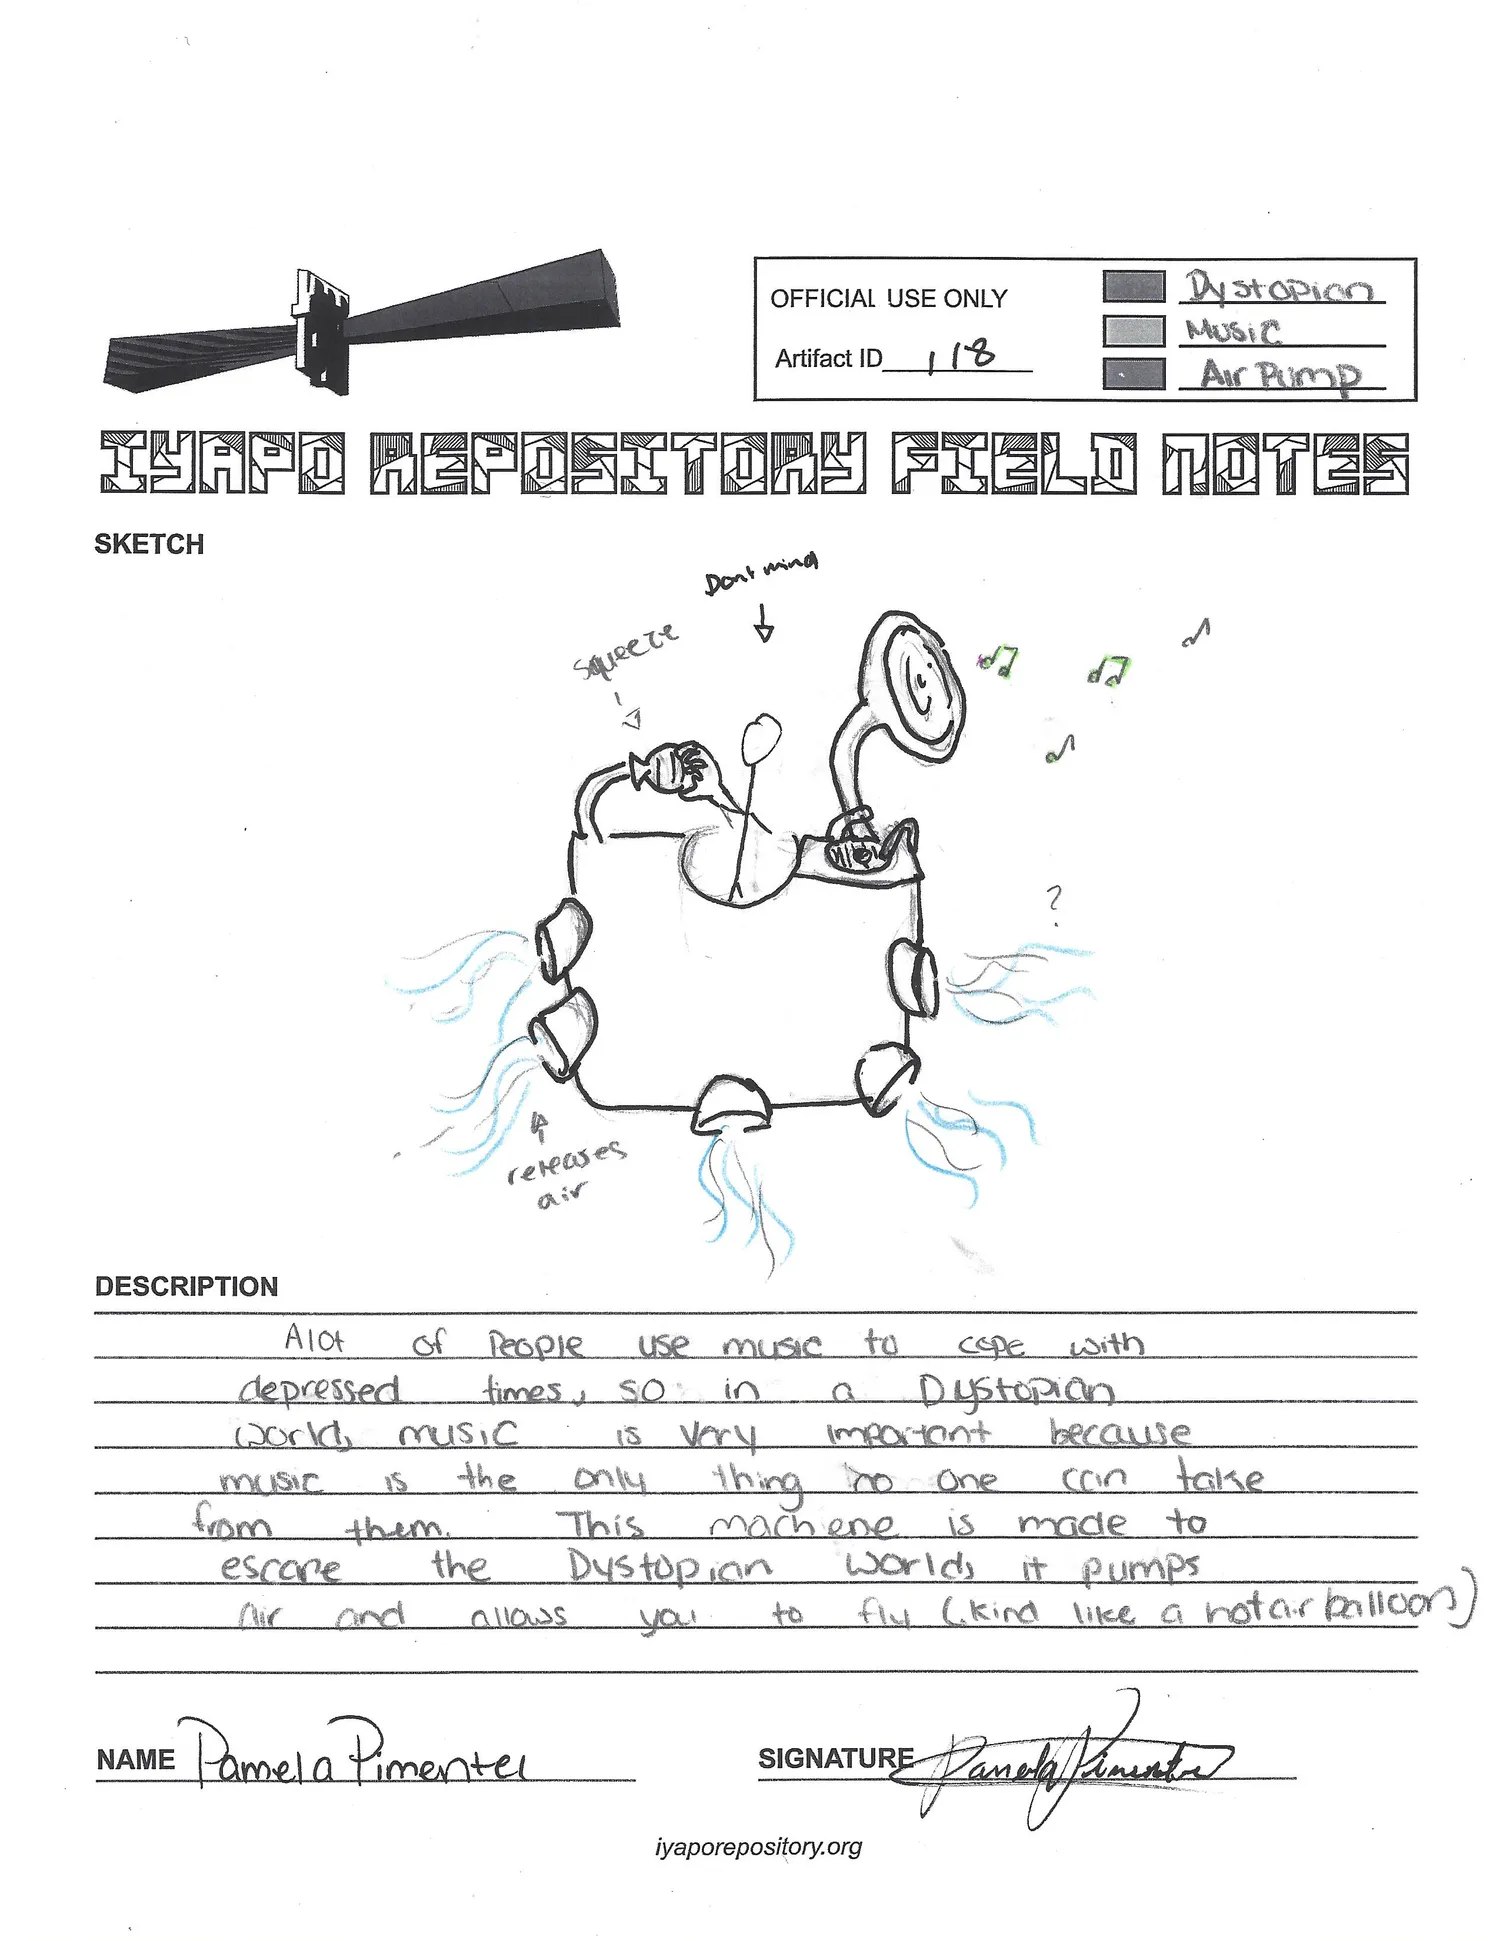 OFFICIAL USE ONLY
Artifact ID 118
Dystopian
Music
Air Pump
IYAPO REPOSITORY FIELD NOTES
SKETCH
Dont mind
squeeze
?
releases
air
DESCRIPTION
Alot of People use music to cope with
depressed times, so in a Dystopian
world, music is very important because
music is the only thing no one can take
from them. This machene is made to
escape the Dystopian world, it pumps
Air and allows you to fly (kind like a hotair balloon)
NAME Pamela Pimentel
SIGNATURE Pamela Pimentel
iyaporepository.org